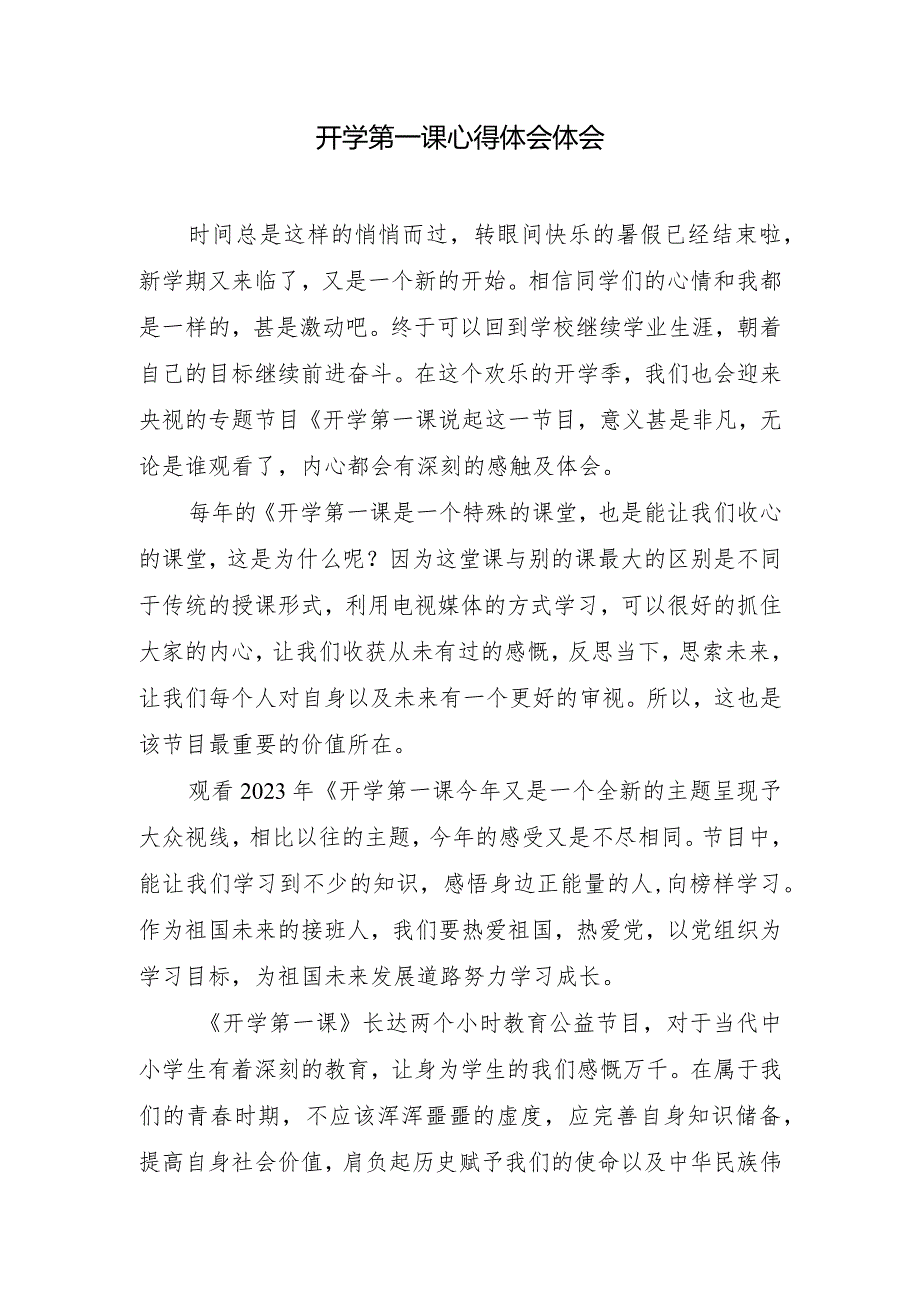 开学第一课心得体会体会
时间总是这样的悄悄而过，转眼问快乐的暑假已经结束啦，
新学期又来临了，又是一个新的开始。相信同学们的心情和我都
是一样的，甚是激动吧。终于可以回到学校继续学业生涯，朝着
自己的目标继续前进奋斗。在这个欢乐的开学季，我们也会迎来
央视的专题节目《开学第一课说起这一节目，意义甚是非凡，无
论是谁观看了，内心都会有深刻的感触及体会。
每年的《开学第一课是一个特殊的课堂，也是能让我们收心
的课堂，这是为什么呢？因为这堂课与别的课最大的区别是不同
于传统的授课形式，利用电视媒体的方式学习，可以很好的抓住
大家的内心，让我们收获从未有过的感慨，反思当下，思索未来，
让我们每个人对自身以及未来有一个更好的审视。所以，这也是
该节目最重要的价值所在。
观看 2023 年《开学第一课今年又是一个全新的主题呈现予
大众视线，相比以往的主题，今年的感受又是不尽相同。节目中，
能让我们学习到不少的知识，感悟身边正能量的人,向榜样学习。
作为祖国未来的接班人，我们要热爱祖国，热爱党，以党组织为
学习目标，为祖国未来发展道路努力学习成长。
《开学第一课》长达两个小时教育公益节目，对于当代中
小学生有着深刻的教育，让身为学生的我们感慨万千。在属于我
们的青春时期，不应该浑浑噩噩的虚度，应完善自身知识储备，
提高自身社会价值，肩负起历史赋予我们的使命以及中华民族伟